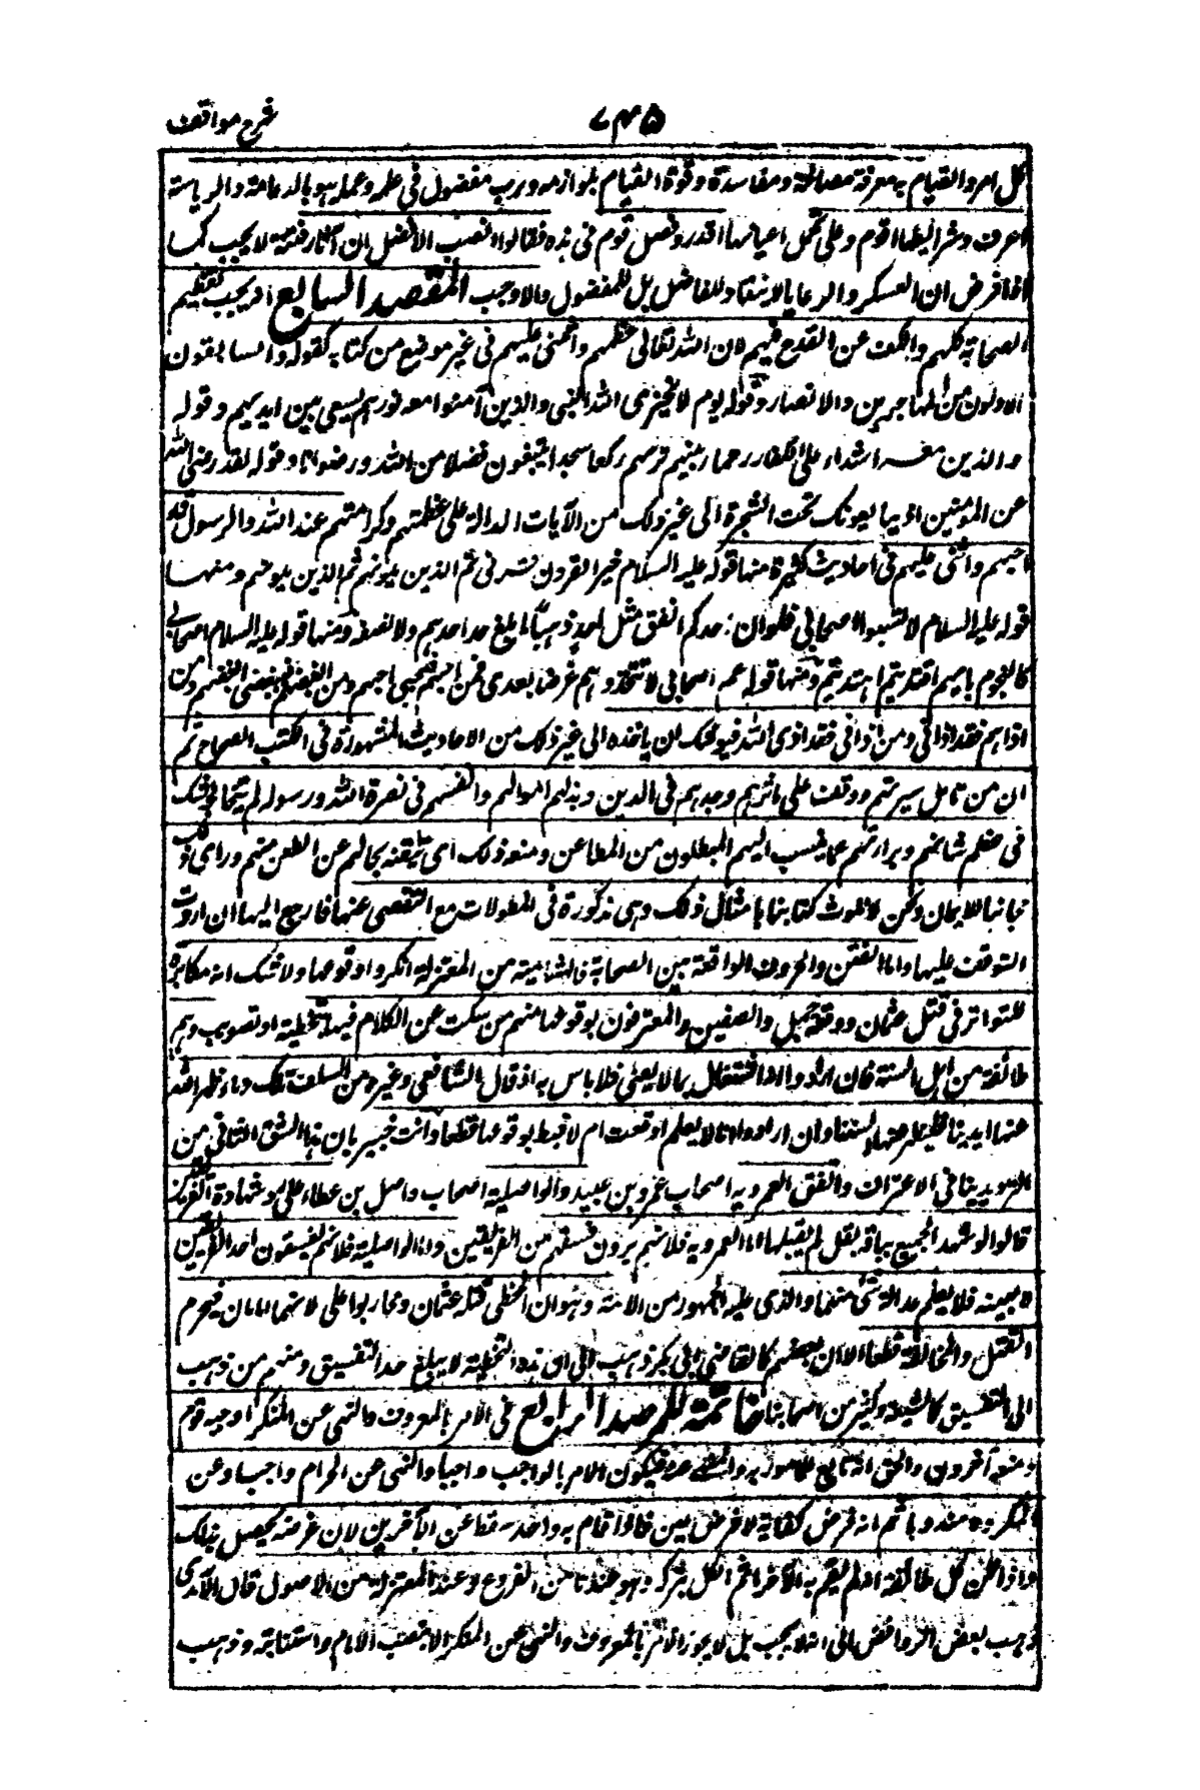 شرح مواقف
٧٤٥
كل امر والقيام به معرفة مصالحة ومفاسدة وقوة القيام بلوازمه ورب مفضول فى علمه وعمله هو بالدعامة والرياسة
اعرف وشرايطها اقوم وعلى تحمل اعبائها اقدر وفصل قوم فى هذه فقالوا نصب الافضل ان اثار فتنة لا يجب كما
اذا فرض ان العسكر والرعايا لا ينقاد للفاضل بل للمفضول والا وجب المقصد السابع انه يجب تعظيم
الصحابة كلهم والكف عن القدح فيهم لان الله تعالى عظمهم واثنى عليهم فى غير موضع من كتابه كقوله والسابقون
الاولون من المهاجرين والانصار وقوله يوم لا يخزى الله النبى والذين آمنوا معه نورهم يسعى بين ايديهم وقوله
والذين معه اشداء على الكفار رحماء بينهم تراهم ركعا سجدا يبتغون فضلا من الله ورضوانا وقوله لقد رضى الله
عن المؤمنين اذ يبايعونك تحت الشجرة الى غير ذلك من الآيات الدالة على عظمتهم وكرامتهم عند الله والرسول قد
احبهم واثنى عليهم فى احاديث كثيرة منها قوله عليه السلام خير القرون قرنى ثم الذين يلونهم ثم الذين يلونهم ومنها
قوله عليه السلام لا تسبوا اصحابى فلو ان احدكم انفق مثل احد ذهبا ما بلغ مد احدهم ولا نصفه ومنها قوله عليه السلام اصحابى
كالنجوم بايهم اقتديتم اهتديتم ومنها قوله عم اصحابى لا تتخذوهم غرضا بعدى فمن احبهم فبحبى احبهم ومن ابغضهم فببغضى ابغضهم ومن
اذاهم فقد اذانى ومن اذانى فقد اذى الله فيوشك ان ياخذه الى غير ذلك من الاحاديث المشهورة فى الكتب الصحاح ثم
ان من تامل سيرتهم ووقف على ماثرهم وجدهم فى الدين وبذلهم اموالهم وانفسهم فى نصرة الله ورسوله لم يتخالجه شك
فى عظم شانهم وبراءتهم عما ينسب اليهم المبطلون من المطاعن ومنعه ذلك اى تيقنه بحالهم عن الطعن فيهم وراى ذلك
مجانبا للايمان ونحن لا نلوث كتابنا بامثال ذلك وهى مذكورة فى المطولات مع التفصى عنها فارجع اليها ان اردت
التوقف عليها واما الفتن والحروب الواقعة بين الصحابة فالهشامية من المعتزلة انكروا وقوعها ولا شك انه مكابرة
للتواتر فى قتل عثمان ووقعة جمل والصفين والمعترفون بوقوعها منهم من سكت عن الكلام فيها تخطية او تصويب وهم
طائفة من اهل السنة فان ارادوا انه اشتغال بما لا يعنى فلا باس به اذ قال الشافعى وغيره من السلف تلك دماء طهر الله
عنها ايدينا فلنطهر عنها السنتنا وان ارادوا انا لا يعلم اوقعت ام لا فبط بوقوعها قطعا وانت خبير بان هذا الشق الثانى من
الترديد ينافى الاعتراف واتفق العمروية اصحاب عمرو بن عبيد والواصلية اصحاب واصل بن عطاء على رد شهادة الفريقين
قالوا لو شهد الجميع بباقة بقل لم يقبلها اما العمروية فلانهم يرون فسقهم من الفريقين واما الواصلية فلانهم يفسقون احد الفريقين
لا بعينه فلا يعلم عدالة شئ منهما والذى عليه الجمهور من الامة وهو ان المخطى قتلة عثمان ومحاربوا على لانهما امامان فيحرم
القتل والمخالفة قطعا الا ان بعضهم كالقاضى ابى بكر ذهب الى ان هذه التخطية لا يبلغ حد التفسيق ومنهم من ذهب
الى التفسيق كالشيعة وكثير من اصحابنا خاتمة للمرصد الرابع فى الامر بالمعروف والنهى عن المنكر اوجبه قوم
ومنعه آخرون والحق انه تابع للمامور به والمنهى عنه فيكون الامر بالواجب واجبا والنهى عن الحرام واجبا وعن
المكروه مندوبا ثم انه فرض كفاية لا فرض عين فاذا قام به واحد سقط عن الآخرين لان غرضه يحصل بذلك
واذا ظن كل طائفة انه لم يقم به الآخر اثم الكل بتركه وهو عندنا من الفروع وعند المعتزلة من الاصول قال الآمدى
ذهب بعض الروافض الى انه لا يجب بل لا يجوز الامر بالمعروف والنهى عن المنكر الا بنصب الامام واستنابته وذهب